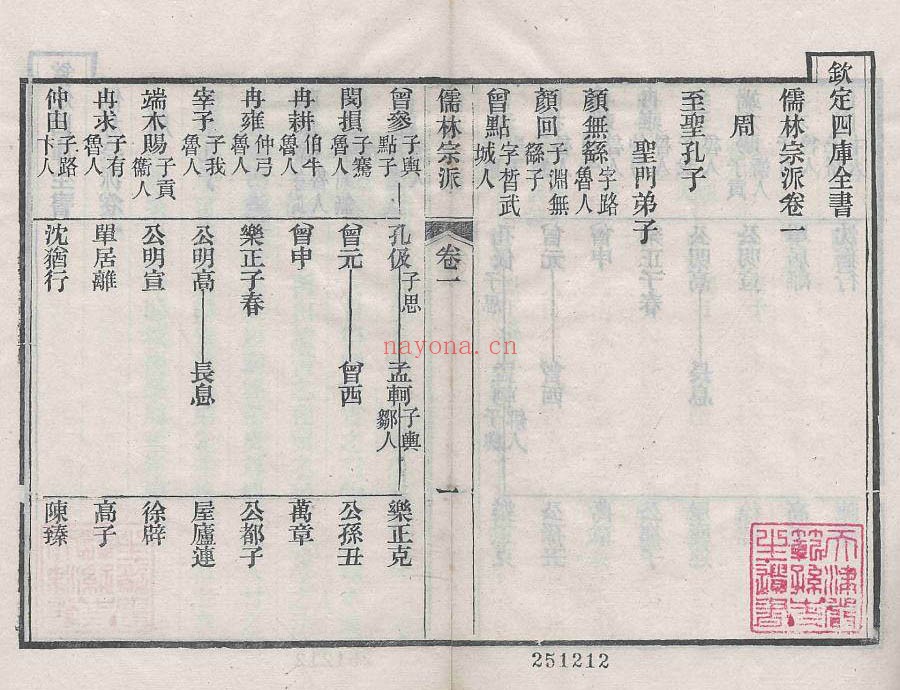 欽定四庫全書
儒林宗派卷一
周
至聖孔子
聖門弟子
顏無繇 字路 魯人
顏回 子淵 無繇子
曾點 字皙 武城人
儒林宗派 卷一 一
曾參 子輿 點子 孔伋 子思 孟軻 子輿 鄒人 樂正克
閔損 子騫 魯人 曾元 曾西 公孫丑
冉耕 伯牛 魯人 曾申 萬章
冉雍 仲弓 魯人 樂正子春 公都子
宰予 子我 魯人 公明高 長息 屋廬連
端木賜 子貢 衞人 公明宣 徐辟
冉求 子有 魯人 單居離 高子
仲由 子路 卞人 沈猶行 陳臻
nayona.cn
251212